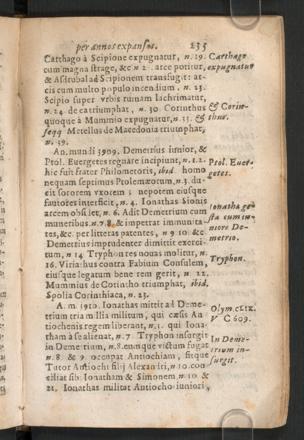 per annos expansus. 235
Carthago à Scipione expugnatur, n. 19. Carthago
cum magna strage, &c n 2 . arce potitur, expugnatur
& Asdrubal ad Scipionem transfugit: ar-
cis cum multo populo incendium . n. 23.
Scipio super vrbis ruinam lachrimatur,
n. 24. de ea triumphat, n. 30. Corinthus & Corin-
quoque à Mummio expugnatur, n. 31. & thus.
seqq Metellus de Macedonia triumphat,
n. 39.
An. mundi 3909. Demetrius iunior, &
Ptol. Euergetes regnare incipiunt, n. 1. 2. Ptol. Euer-
hic fuit frater Philometoris, ibid. homo getes.
nequam septimus Ptolemæorum, n. 3. du-
cit sororem vxorem ; nepotem eiusque
fautores interficit, n. 4. Ionathas Sionis Ionatha ge-
arcem obsidet, n. 6. Adit Demetrium cum sta cum iu-
muneribus. n. 7. 8. & impetrat immunita- niore De-
tes, &c. per litteras patentes, n 9 10. &c metrio.
Demetrius imprudenter dimittit exerci-
tum, n 14 Tryphon res nouas molitur, n. Tryphon.
16. Viriathus contra Fabium Consulem,
eiusque legatum bene rem gerit, n. 22.
Mummius de Corintho triumphat, ibid.
Spolia Corinthiaca, n. 23.
A. m. 3910. Ionathas mittit ad Deme- Olym. CLIX.
trium tria millia militum, qui cæsis An V C 609.
tiochenis regem liberant, n. 1. qui Iona-
tham à se alienat, n. 7. Tryphon insurgit In Deme-
in Demetrium, n. 8. eumque victum fugat trium in-
n. 8. & 9 occupat Antiochiam, sitque surgit.
Tutor Antiochi filij Alexandri, n 10. con-
ciliat sibi Ionatham & Simonem, n 10. &
21. Ionathas militat Antiocho iuniori,